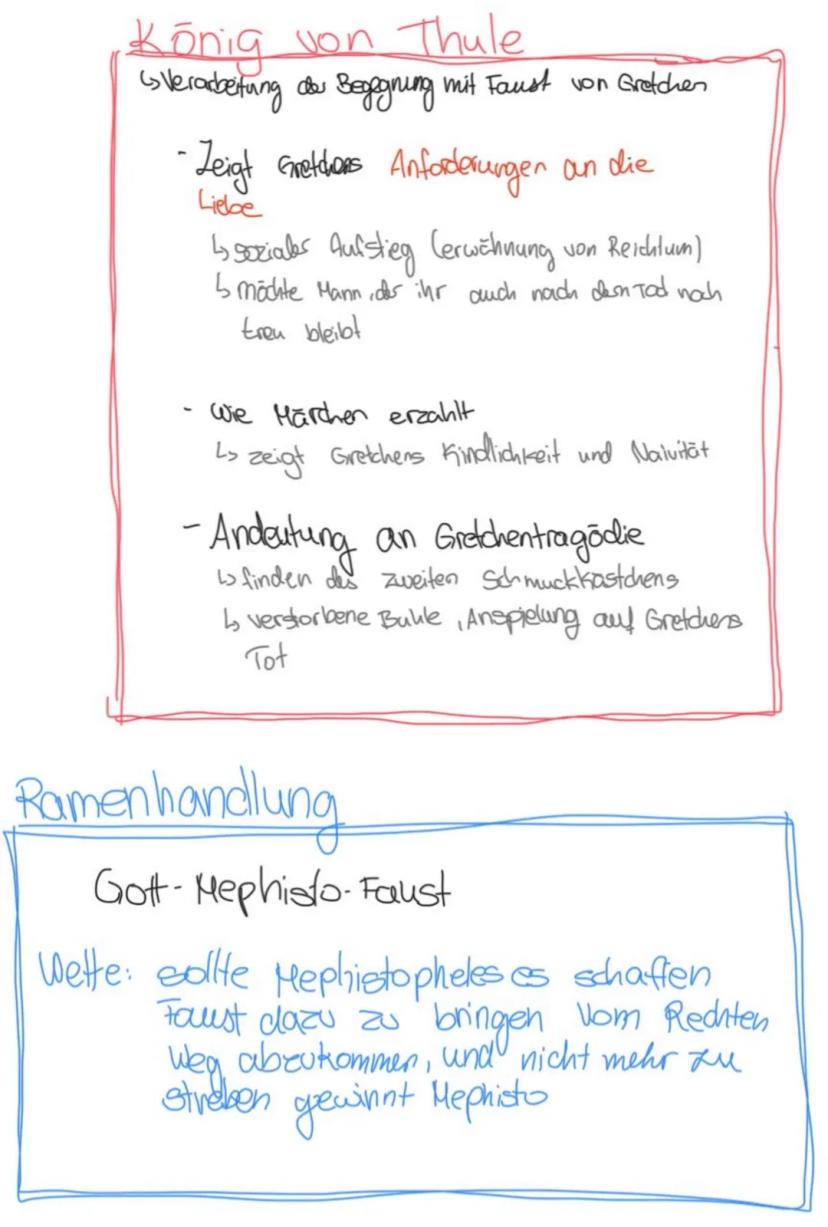 König von Thule
↳Verarbeitung der Begegnung mit Faust von Gretchen
- Zeigt Gretchens Anforderungen an die
Liebe
↳ sozialer Aufstieg (erwähnung von Reichtum)
↳ möchte Mann, der ihr auch nach dem Tod noch
treu bleibt
- Wie Märchen erzählt
↳ zeigt Gretchens Kindlichkeit und Naivität
- Andeutung an Gretchentragödie
↳ finden des zweiten Schmuckkästchens
↳ verstorbene Buhle, Anspielung auf Gretchens
Tot
Ramenhandlung
Gott-Mephisto-Faust
Wette: sollte Mephistopheles es schaffen
Faust dazu zu bringen vom Rechten
Weg abzukommen, und nicht mehr zu
streben gewinnt Mephisto